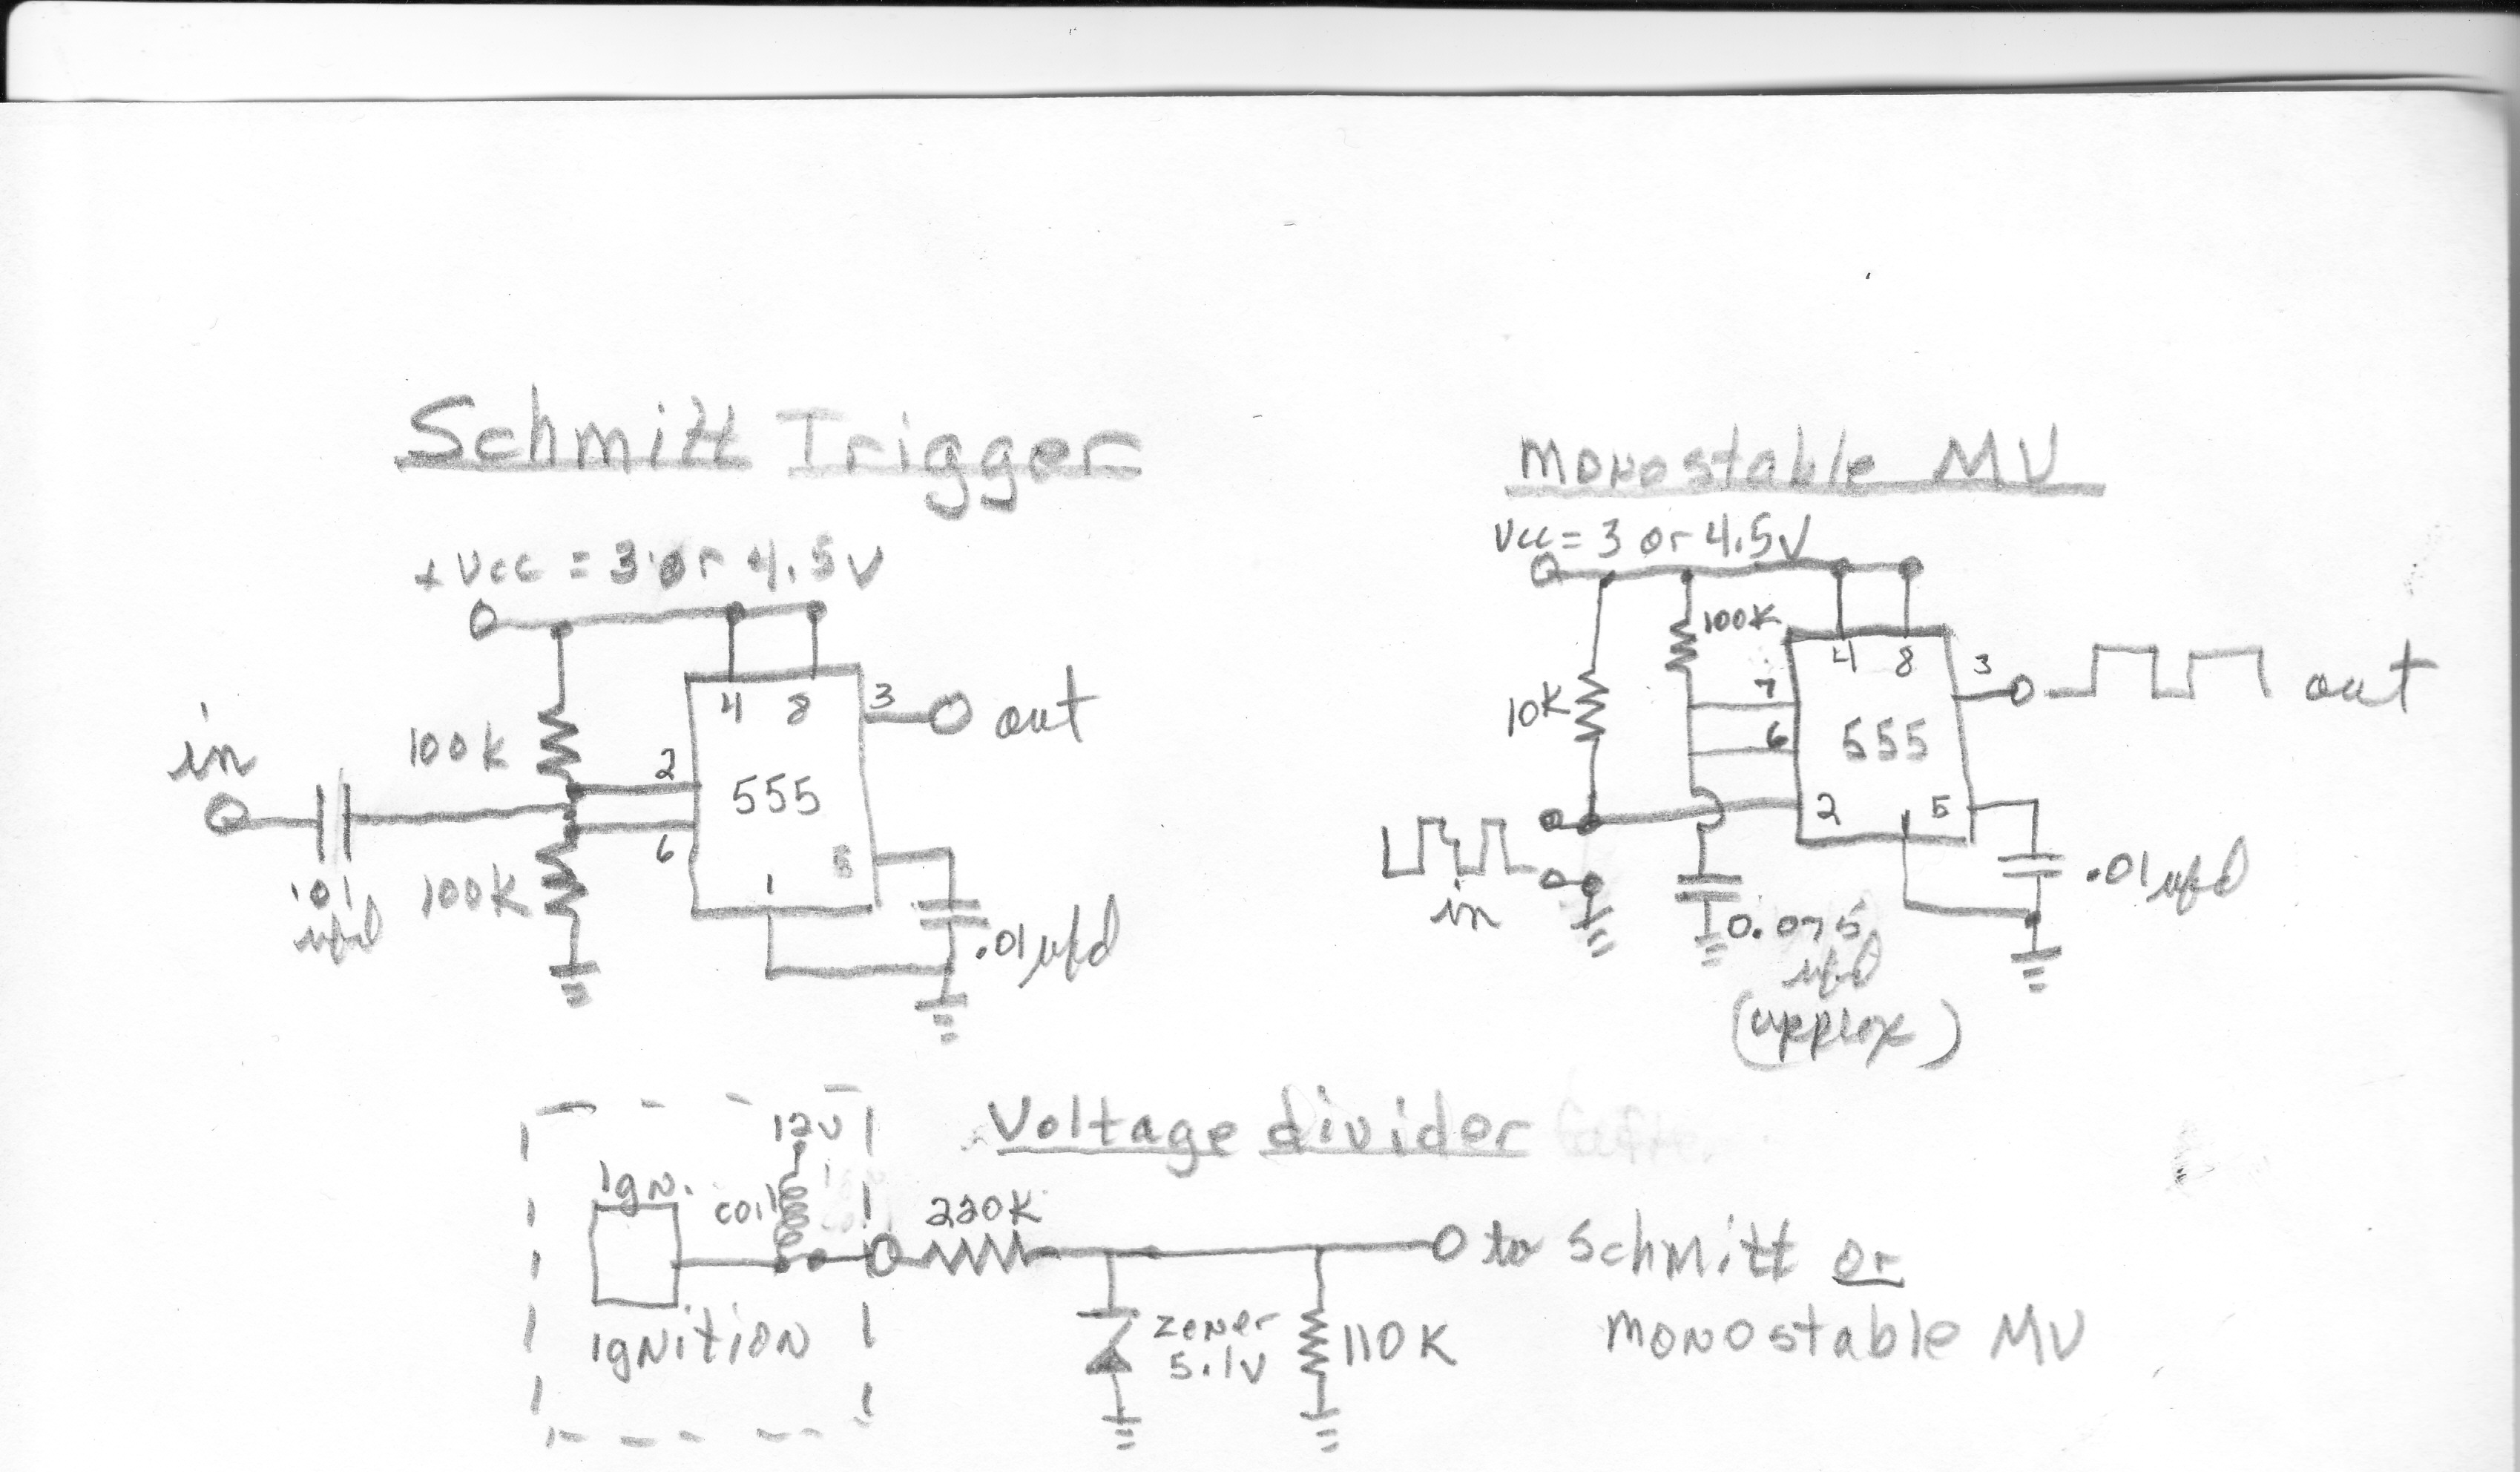 Schmitt Trigger
+Vcc = 3 or 4.5V
in
100K
.01
ufd
100K
2
6
4 8
555
1
5
3
out
.01 ufd
Monostable MV
Vcc = 3 or 4.5V
10K
100K
7
6
2
4 8
555
5
3
out
in
0.075
ufd
(approx)
.01 ufd
Voltage divider
12V
Ign.
coil
Ignition
220K
zener
5.1V
110K
to Schmitt or
Monostable MV